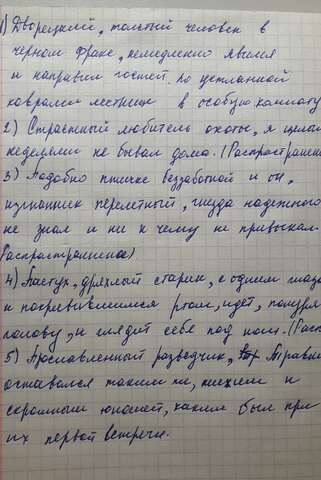 1) Дворецкий, толстый человек в
черном фраке, немедленно явился
и направил гостей по устланной
коврами лестнице в особую комнату
2) Страстный любитель охоты, я целыми
неделями не бывал дома. (Распространен
3) Подобно птичке беззаботной и он,
изгнанник перелетный, гнезда надежного
не знал и ни к чему не привыкал.
Распространенное)
4) Пастух, дряхлый старик, с одним глазом
и покривившимся ртом, идет, понуря
голову, и глядит себе под ноги. (Расп
5) Прославленный разведчик, Травкин
оставался таким же, тихим и
скромным юношей, каким был при
их первой встрече.